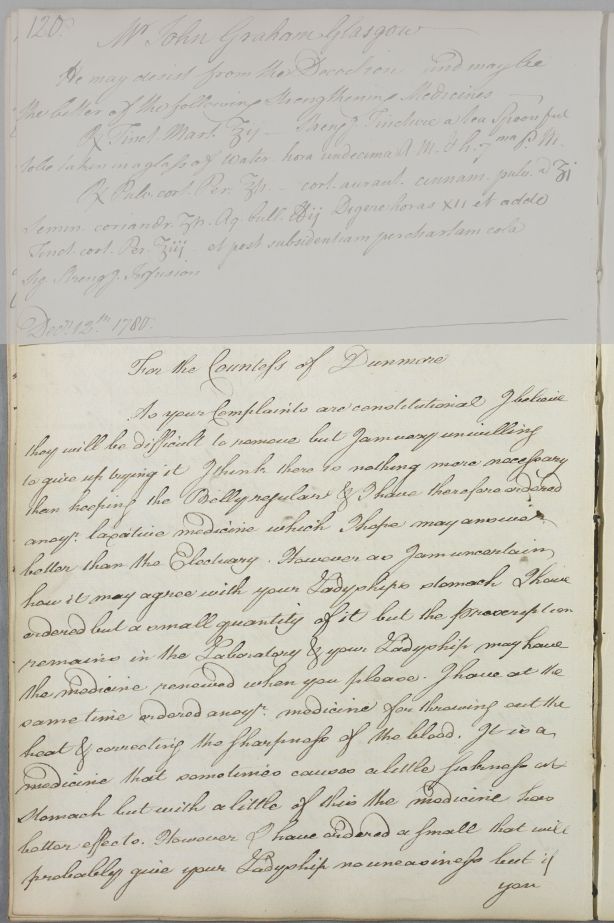 120.
Mr. John Graham Glasgow
He may desist from the Decoction and may be
the better of the following Strengthening Medicines
℞ Tinct. Mart. ʒij Streng. Tincture a tea Spoonful
to be taken in a glass of Water hora undecima A. M. & h. 7ma P. M.
℞ Pulv. cort. Per. cort. aurant. cinnam. pulv. a ʒi
Semin. coriandr. Aq. bull. Digere horas XII et adde
Tinct. cort. Per. ʒiij et post subsidentiam per chartam cola
Sig. Streng. Infusion
Decr. 12th. 1780.
For the Countess of Dunmore
As your Complaints are constitutional I believe
they will be difficult to remove but I am very unwilling
to give up trying it I think there is nothing more necessary
than keeping the Belly regular & I have therefore ordered
anoyr. laxative medicine which I hope may answer
better than the Electuary. However as I am uncertain
how it may agree with your Ladyships stomach I have
ordered but a small quantity of it but the prescription
remains in the Laboratory & your Ladyship may have
the medicine renewed when you please. I have at the
same time ordered anoyr. medicine for throwing out the
heat & correcting the sharpness of the blood. It is a
medicine that sometimes causes a little sickness at
stomach but with a little of this the medicine has
better effects. However I have ordered a small that will
probably give your Ladyship no uneasiness but if
you